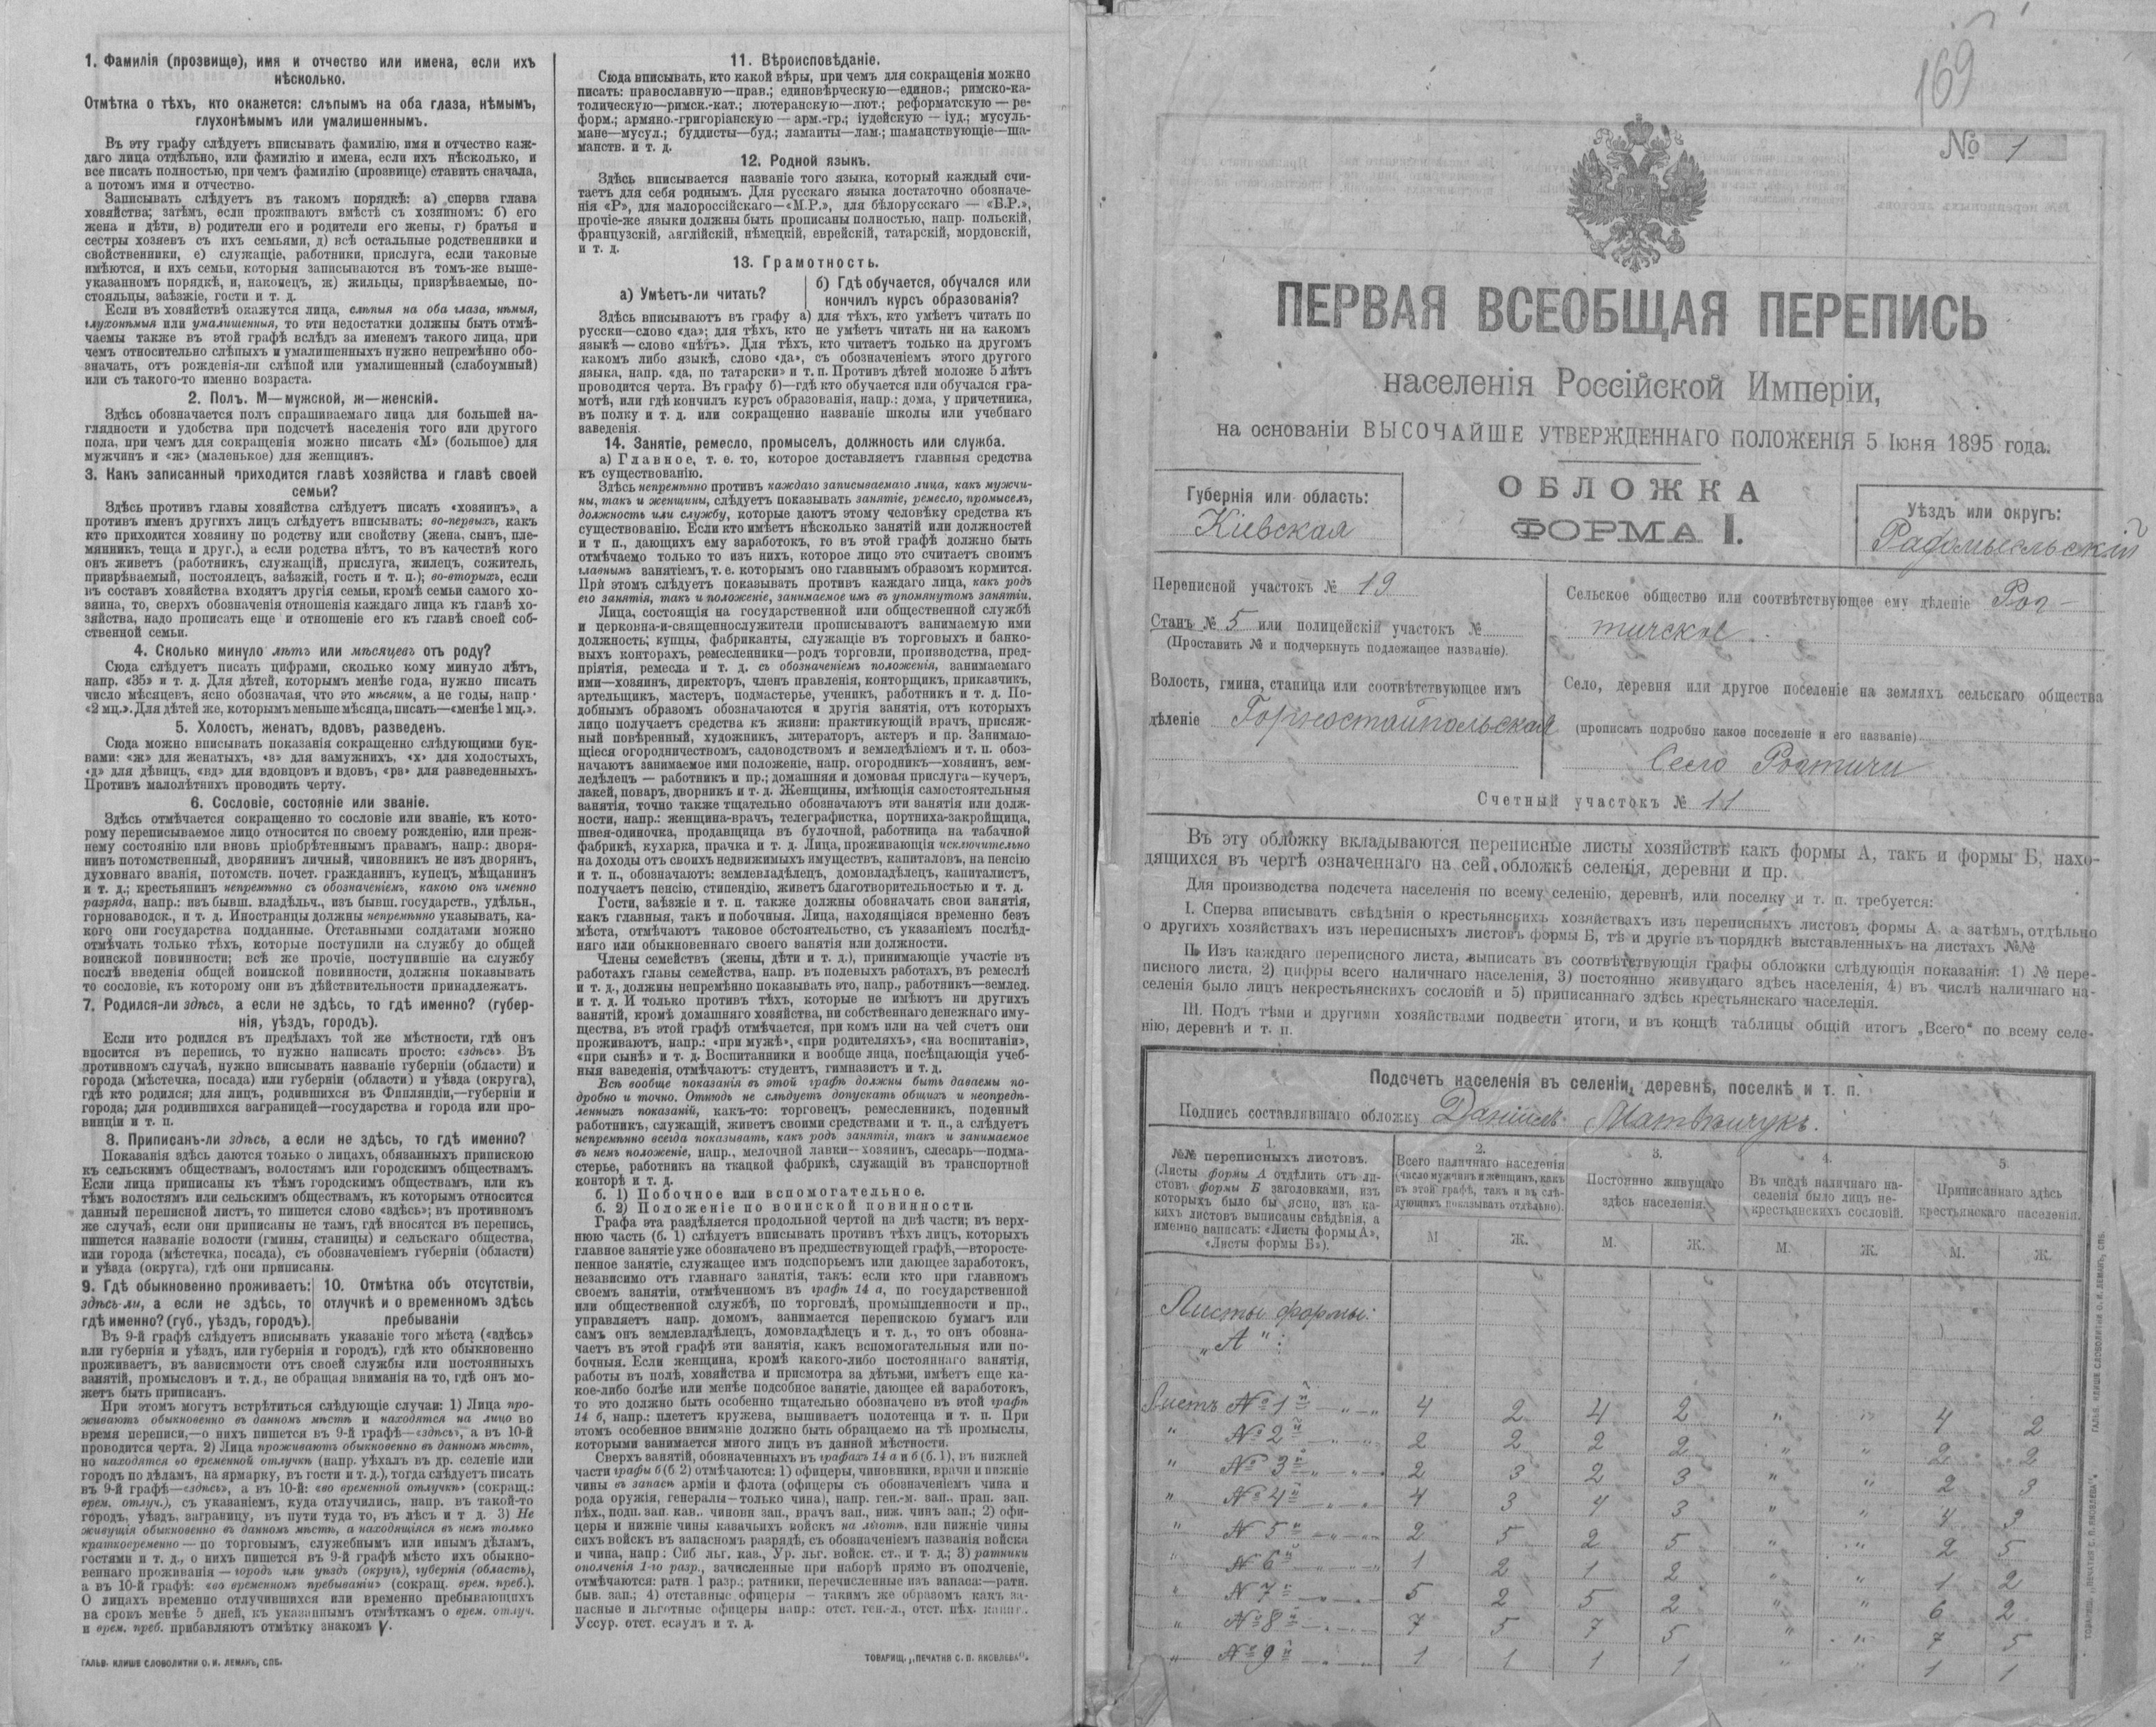 1. Фамилія (прозвище), имя и отчество или имена, если ихъ
нѣсколько.
Отмѣтка о тѣхъ, кто окажется: слѣпымъ на оба глаза, нѣмымъ,
глухонѣмымъ или умалишеннымъ.
Въ эту графу слѣдуетъ вписывать фамилію, имя и отчество каж-
даго лица отдѣльно, или фамилію и имена, если ихъ нѣсколько, и
все писать полностью, при чемъ фамилію (прозвище) ставить сначала,
а потомъ имя и отчество.
Записывать слѣдуетъ въ такомъ порядкѣ: а) сперва глава
хозяйства; затѣмъ, если проживаютъ вмѣстѣ съ хозяиномъ: б) его
жена и дѣти, в) родители его и родители его жены, г) братья и
сестры хозяевъ съ ихъ семьями, д) всѣ остальные родственники и
свойственники, е) служащіе, работники, прислуга, если таковые
имѣются, и ихъ семьи, которыя записываются въ томъ-же выше-
указанномъ порядкѣ, и, наконецъ, ж) жильцы, призрѣваемые, по-
стояльцы, заѣзжіе, гости и т. д.
Если въ хозяйствѣ окажутся лица, слѣпыя на оба глаза, нѣмыя,
глухонѣмыя или умалишенныя, то эти недостатки должны быть отмѣ-
чаемы также въ этой графѣ вслѣдъ за именемъ такого лица, при
чемъ относительно слѣпыхъ и умалишенныхъ нужно непремѣнно обо-
значать, отъ рожденія-ли слѣпой или умалишенный (слабоумный)
или съ такого-то именно возраста.
2. Полъ. М—мужской, ж—женскій.
Здѣсь обозначается полъ спрашиваемаго лица для большей на-
глядности и удобства при подсчетѣ населенія того или другого
пола, при чемъ для сокращенія можно писать «М» (большое) для
мужчинъ и «ж» (маленькое) для женщинъ.
3. Какъ записанный приходится главѣ хозяйства и главѣ своей
семьи?
Здѣсь противъ главы хозяйства слѣдуетъ писать «хозяинъ», а
противъ именъ другихъ лицъ слѣдуетъ вписывать: во-первыхъ, какъ
кто приходится хозяину по родству или свойству (жена, сынъ, пле-
мянникъ, теща и друг.), а если родства нѣтъ, то въ качествѣ кого
онъ живетъ (работникъ, служащій, прислуга, жилецъ, сожитель,
призрѣваемый, постоялецъ, заѣзжій, гость и т. п.); во-вторыхъ, если
въ составъ хозяйства входятъ другія семьи, кромѣ семьи самого хо-
зяина, то, сверхъ обозначенія отношенія каждаго лица къ главѣ хо-
зяйства, надо прописать еще и отношеніе его къ главѣ своей соб-
ственной семьи.
4. Сколько минуло лѣтъ или мѣсяцевъ отъ роду?
Сюда слѣдуетъ писать цифрами, сколько кому минуло лѣтъ,
напр. «35» и т. д. Для дѣтей, которымъ менѣе года, нужно писать
число мѣсяцевъ, ясно обозначая, что это мѣсяцы, а не годы, напр.
«2 мц.». Для дѣтей же, которымъ меньше мѣсяца, писать—«менѣе 1 мц.».
5. Холостъ, женатъ, вдовъ, разведенъ.
Сюда можно вписывать показанія сокращенно слѣдующими бук-
вами: «ж» для женатыхъ, «з» для замужнихъ, «х» для холостыхъ,
«д» для дѣвицъ, «вд» для вдовцовъ и вдовъ, «рв» для разведенныхъ.
Противъ малолѣтнихъ проводить черту.
6. Сословіе, состояніе или званіе.
Здѣсь отмѣчается сокращенно то сословіе или званіе, къ кото-
рому переписываемое лицо относится по своему рожденію, или преж-
нему состоянію или вновь пріобрѣтеннымъ правамъ, напр.: дворя-
нинъ потомственный, дворянинъ личный, чиновникъ не изъ дворянъ,
духовнаго званія, потомств. почет. гражданинъ, купецъ, мѣщанинъ
и т. д.; крестьянинъ непремѣнно съ обозначеніемъ, какого онъ именно
разряда, напр.: изъ бывш. владѣльч., изъ бывш. государств., удѣльн.,
горнозаводск., и т. д. Иностранцы должны непремѣнно указывать, ка-
кого они государства подданные. Отставными солдатами можно
отмѣчать только тѣхъ, которые поступили на службу до общей
воинской повинности; всѣ же прочіе, поступившіе на службу
послѣ введенія общей воинской повинности, должны показывать
то сословіе, къ которому они въ дѣйствительности принадлежатъ.
7. Родился-ли здѣсь, а если не здѣсь, то гдѣ именно? (губер-
нія, уѣздъ, городъ).
Если кто родился въ предѣлахъ той же мѣстности, гдѣ онъ
вносится въ перепись, то нужно написать просто: «здѣсь». Въ
противномъ случаѣ, нужно вписывать названіе губерніи (области) и
города (мѣстечка, посада) или губерніи (области) и уѣзда (округа),
гдѣ кто родился; для лицъ, родившихся въ Финляндіи,—губерніи и
города; для родившихся заграницей—государства и города или про-
винціи и т. п.
8. Приписанъ-ли здѣсь, а если не здѣсь, то гдѣ именно?
Показанія здѣсь даются только о лицахъ, обязанныхъ припискою
къ сельскимъ обществамъ, волостямъ или городскимъ обществамъ.
Если лица приписаны къ тѣмъ городскимъ обществамъ, или къ
тѣмъ волостямъ или сельскимъ обществамъ, къ которымъ относится
данный переписной листъ, то пишется слово «здѣсь»; въ противномъ
же случаѣ, если они приписаны не тамъ, гдѣ вносятся въ перепись,
пишется названіе волости (гмины, станицы) и сельскаго общества,
или города (мѣстечка, посада), съ обозначеніемъ губерніи (области)
и уѣзда (округа), гдѣ они приписаны.
9. Гдѣ обыкновенно проживаетъ:
здѣсь-ли, а если не здѣсь, то
гдѣ именно? (губ., уѣздъ, городъ).
10. Отмѣтка объ отсутствіи,
отлучкѣ и о временномъ здѣсь
пребываніи
Въ 9-й графѣ слѣдуетъ вписывать указаніе того мѣста («здѣсь»
или губернія и уѣздъ, или губернія и городъ), гдѣ кто обыкновенно
проживаетъ, въ зависимости отъ своей службы или постоянныхъ
занятій, промысловъ и т. д., не обращая вниманія на то, гдѣ онъ мо-
жетъ быть приписанъ.
При этомъ могутъ встрѣтиться слѣдующіе случаи: 1) Лица про-
живаютъ обыкновенно въ данномъ мѣстѣ и находятся на лицо во
время переписи,—о нихъ пишется въ 9-й графѣ—«здѣсь», а въ 10-й
проводится черта. 2) Лица проживаютъ обыкновенно въ данномъ мѣстѣ,
но находятся во временной отлучкѣ (напр. уѣхалъ въ др. селеніе или
городъ по дѣламъ, на ярмарку, въ гости и т. д.), тогда слѣдуетъ писать
въ 9-й графѣ—«здѣсь», а въ 10-й: «во временной отлучкѣ» (сокращ.:
врем. отлуч.), съ указаніемъ, куда отлучились, напр. въ такой-то
городъ, уѣздъ, заграницу, въ пути туда то, въ лѣсъ и т д. 3) Не
живущія обыкновенно въ данномъ мѣстѣ, а находящіяся въ немъ только
кратковременно — по торговымъ, служебнымъ или инымъ дѣламъ,
гостями и т. д., о нихъ пишется въ 9-й графѣ мѣсто ихъ обыкно-
веннаго проживанія — городъ или уѣздъ (округъ), губернія (область),
а въ 10-й графѣ: «во временномъ пребываніи» (сокращ. врем. преб.).
О лицахъ временно отлучившихся или временно пребывающихъ
на срокъ менѣе 5 дней, къ указаннымъ отмѣткамъ о врем. отлуч.
и врем. преб. прибавляютъ отмѣтку знакомъ V.
ГАЛЬВ. КЛИШЕ СЛОВОЛИТНИ О. И. ЛЕМАНЪ, СПБ.
11. Вѣроисповѣданіе.
Сюда вписывать, кто какой вѣры, при чемъ для сокращенія можно
писать: православную—прав.; единовѣрческую—единов.; римско-ка-
толическую—римск.-кат.; лютеранскую—лют.; реформатскую — ре-
форм.; армяно.-григоріанскую — арм.-гр.; іудейскую — іуд.; мусуль-
мане—мусул.; буддисты—буд.; ламаиты—лам.; шаманствующіе—ша-
манств. и т. д.
12. Родной языкъ.
Здѣсь вписывается названіе того языка, который каждый счи-
таетъ для себя роднымъ. Для русскаго языка достаточно обозначе-
нія «Р», для малороссійскаго—«М.Р.», для бѣлорусскаго — «Б.Р.»,
прочіе-же языки должны быть прописаны полностью, напр. польскій,
французскій, англійскій, нѣмецкій, еврейскій, татарскій, мордовскій,
и т. д.
13. Грамотность.
а) Умѣетъ-ли читать?
б) Гдѣ обучается, обучался или
кончилъ курсъ образованія?
Здѣсь вписываютъ въ графу а) для тѣхъ, кто умѣетъ читать по
русски—слово «да»; для тѣхъ, кто не умѣетъ читать ни на какомъ
языкѣ — слово «нѣтъ». Для тѣхъ, кто читаетъ только на другомъ
какомъ либо языкѣ, слово «да», съ обозначеніемъ этого другого
языка, напр. «да, по татарски» и т. п. Противъ дѣтей моложе 5 лѣтъ
проводится черта. Въ графу б)—гдѣ кто обучается или обучался гра-
мотѣ, или гдѣ кончилъ курсъ образованія, напр.: дома, у причетника,
въ полку и т. д. или сокращенно названіе школы или учебнаго
заведенія.
14. Занятіе, ремесло, промыселъ, должность или служба.
а) Главное, т. е. то, которое доставляетъ главныя средства
къ существованію.
Здѣсь непремѣнно противъ каждаго записываемаго лица, какъ мужчи-
ны, такъ и женщины, слѣдуетъ показывать занятіе, ремесло, промыселъ,
должность или службу, которые даютъ этому человѣку средства къ
существованію. Если кто имѣетъ нѣсколько занятій или должностей
и т п., дающихъ ему заработокъ, то въ этой графѣ должно быть
отмѣчаемо только то изъ нихъ, которое лицо это считаетъ своимъ
главнымъ занятіемъ, т. е. которымъ оно главнымъ образомъ кормится.
При этомъ слѣдуетъ показывать противъ каждаго лица, какъ родъ
его занятія, такъ и положеніе, занимаемое имъ въ упомянутомъ занятіи.
Лица, состоящія на государственной или общественной службѣ
и церковна-и-священнослужители прописываютъ занимаемую ими
должность; купцы, фабриканты, служащіе въ торговыхъ и банко-
выхъ конторахъ, ремесленники—родъ торговли, производства, пред-
пріятія, ремесла и т. д. съ обозначеніемъ положенія, занимаемаго
ими—хозяинъ, директоръ, членъ правленія, конторщикъ, приказчикъ,
артельщикъ, мастеръ, подмастерье, ученикъ, работникъ и т. д. По-
добнымъ образомъ обозначаются и другія занятія, отъ которыхъ
лицо получаетъ средства къ жизни: практикующій врачъ, присяж-
ный повѣренный, художникъ, литераторъ, актеръ и пр. Занимаю-
щіеся огородничествомъ, садоводствомъ и земледѣліемъ и т. п. обоз-
начаютъ занимаемое ими положеніе, напр. огородникъ—хозяинъ, зем-
ледѣлецъ — работникъ и пр.; домашняя и домовая прислуга—кучеръ,
лакей, поваръ, дворникъ и т. д. Женщины, имѣющія самостоятельныя
занятія, точно также тщательно обозначаютъ эти занятія или долж-
ности, напр.: женщина-врачъ, телеграфистка, портниха-закройщица,
швея-одиночка, продавщица въ булочной, работница на табачной
фабрикѣ, кухарка, прачка и т. д. Лица, проживающія исключительно
на доходы отъ своихъ недвижимыхъ имуществъ, капиталовъ, на пенсію
и т. п., обозначаютъ: землевладѣлецъ, домовладѣлецъ, капиталистъ,
получаетъ пенсію, стипендію, живетъ благотворительностью и т. д.
Гости, заѣзжіе и т. п. также должны обозначать свои занятія,
какъ главныя, такъ и побочныя. Лица, находящіяся временно безъ
мѣста, отмѣчаютъ таковое обстоятельство, съ указаніемъ послѣд-
няго или обыкновеннаго своего занятія или должности.
Члены семействъ (жены, дѣти и т. д.), принимающіе участіе въ
работахъ главы семейства, напр. въ полевыхъ работахъ, въ ремеслѣ
и т. д., должны непремѣнно показывать это, напр., работникъ—землед.
и т. д. И только противъ тѣхъ, которые не имѣютъ ни другихъ
занятій, кромѣ домашняго хозяйства, ни собственнаго денежнаго иму-
щества, въ этой графѣ отмѣчается, при комъ или на чей счетъ они
проживаютъ, напр.: «при мужѣ», «при родителяхъ», «на воспитаніи»,
«при сынѣ» и т. д. Воспитанники и вообще лица, посѣщающія учеб-
ныя заведенія, отмѣчаютъ: студентъ, гимназистъ и т. д.
Всѣ вообще показанія въ этой графѣ должны быть даваемы по-
дробно и точно. Отнюдь не слѣдуетъ допускать общихъ и неопредѣ-
ленныхъ показаній, какъ-то: торговецъ, ремесленникъ, поденный
работникъ, служащій, живетъ своими средствами и т. п., а слѣдуетъ
непремѣнно всегда показывать, какъ родъ занятія, такъ и занимаемое
въ немъ положеніе, напр., мелочной лавки—хозяинъ, слесарь—подма-
стерье, работникъ на ткацкой фабрикѣ, служащій въ транспортной
конторѣ и т. д.
б. 1) Побочное или вспомогательное.
б. 2) Положеніе по воинской повинности.
Графа эта раздѣляется продольной чертой на двѣ части; въ верх-
нюю часть (б. 1) слѣдуетъ вписывать противъ тѣхъ лицъ, которыхъ
главное занятіе уже обозначено въ предшествующей графѣ,—второсте-
пенное занятіе, служащее имъ подспорьемъ или дающее заработокъ,
независимо отъ главнаго занятія, такъ: если кто при главномъ
своемъ занятіи, отмѣченномъ въ графѣ 14 а, по государственной
или общественной службѣ, по торговлѣ, промышленности и пр.,
управляетъ напр. домомъ, занимается перепискою бумагъ или
самъ онъ землевладѣлецъ, домовладѣлецъ и т. д., то онъ обозна-
чаетъ въ этой графѣ эти занятія, какъ вспомогательныя или по-
бочныя. Если женщина, кромѣ какого-либо постояннаго занятія,
работы въ полѣ, хозяйства и присмотра за дѣтьми, имѣетъ еще ка-
кое-либо болѣе или менѣе подсобное занятіе, дающее ей заработокъ,
то это должно быть особенно тщательно обозначено въ этой графѣ
14 б, напр.: плететъ кружева, вышиваетъ полотенца и т. п. При
этомъ особенное вниманіе должно быть обращаемо на тѣ промыслы,
которыми занимается много лицъ въ данной мѣстности.
Сверхъ занятій, обозначенныхъ въ графахъ 14 а и б (б. 1), въ нижней
части графы б (б 2) отмѣчаются: 1) офицеры, чиновники, врачи и нижніе
чины въ запасѣ арміи и флота (офицеры съ обозначеніемъ чина и
рода оружія, генералы—только чина), напр. ген.-м. зап., прап. зап.
пѣх., подп. зап. кав., чиновн зап., врачъ зап., ниж. чинъ зап.; 2) офи-
церы и нижніе чины казачьихъ войскъ на льготѣ, или нижніе чины
сихъ войскъ въ запасномъ разрядѣ, съ обозначеніемъ названія войска
и чина, напр: Сиб льг. каз., Ур. льг. войск. ст., и т. д.; 3) ратники
ополченія 1-го разр., зачисленные при наборѣ прямо въ ополченіе,
отмѣчаются: ратн. 1 разр.; ратники, перечисленные изъ запаса:—ратн.
быв. зап.; 4) отставные офицеры — такимъ же образомъ какъ за-
пасные и льготные офицеры напр.: отст. ген.-л., отст. пѣх. капит.,
Уссур. отст. есаулъ и т. д.
ТОВАРИЩ. „ПЕЧАТНЯ С. П. ЯКОВЛЕВА“.
169
1
№ 1
ПЕРВАЯ ВСЕОБЩАЯ ПЕРЕПИСЬ
населенія Россійской Имперіи,
на основаніи ВЫСОЧАЙШЕ УТВЕРЖДЕННАГО ПОЛОЖЕНІЯ 5 Іюня 1895 года.
ОБЛОЖКА
ФОРМА I.
Губернія или область:
Кіевская
Уѣздъ или округъ:
Радомысльскій
Переписной участокъ № 19
Станъ № 5 или полицейскій участокъ №
(Проставить № и подчеркнуть подлежащее названіе).
Волость, гмина, станица или соотвѣтствующее имъ
дѣленіе Горностайпольская
Сельское общество или соотвѣтствующее ему дѣленіе Рот-
тичское
Село, деревня или другое поселеніе на земляхъ сельскаго общества
(прописать подробно какое поселеніе и его названіе)
Село Роттичи
Счетный участокъ № 11
Въ эту обложку вкладываются переписные листы хозяйствъ какъ формы А, такъ и формы Б, нахо-
дящихся въ чертѣ означеннаго на сей обложкѣ селенія, деревни и пр.
Для производства подсчета населенія по всему селенію, деревнѣ, или поселку и т. п. требуется:
I. Сперва вписывать свѣдѣнія о крестьянскихъ хозяйствахъ изъ переписныхъ листовъ формы А, а затѣмъ, отдѣльно
о другихъ хозяйствахъ изъ переписныхъ листовъ формы Б, тѣ и другіе въ порядкѣ выставленныхъ на листахъ №№
II. Изъ каждаго переписного листа, выписать въ соотвѣтствующія графы обложки слѣдующія показанія: 1) № пере-
писного листа, 2) цифры всего наличнаго населенія, 3) постоянно живущаго здѣсь населенія, 4) въ числѣ наличнаго на-
селенія было лицъ некрестьянскихъ сословій и 5) приписаннаго здѣсь крестьянскаго населенія.
III. Подъ тѣми и другими хозяйствами подвести итоги, и въ концѣ таблицы общій итогъ „Всего“ по всему селе-
нію, деревнѣ и т. п.
Подсчетъ населенія въ селеніи, деревнѣ, поселкѣ и т. п.
Подпись составлявшаго обложку Даніилъ Матвійчукъ.
1.
№№ переписныхъ листовъ.
(Листы формы А отдѣлить отъ ли-
стовъ формы Б заголовками, изъ
которыхъ было бы ясно, изъ ка-
кихъ листовъ выписаны свѣдѣнія, а
именно написать: «Листы формы А»,
«Листы формы Б»).
2.
Всего наличнаго населенія
(число мужчинъ и женщинъ, какъ
въ этой графѣ, такъ и въ слѣ-
дующихъ показывать отдѣльно).
3.
Постоянно живущаго
здѣсь населенія.
4.
Въ числѣ наличнаго на-
селенія было лицъ не-
крестьянскихъ сословій.
5
Приписаннаго здѣсь
крестьянскаго населенія.
М Ж. М. Ж. М. Ж. М. Ж.
Листы формы:
„А“:
Листъ № 1й 4 2 4 2 „ „ 4 2
„ № 2й 2 2 2 2 „ „ 2 2
„ № 3й 2 3 2 3 „ „ 2 3
„ № 4й 4 3 4 3 „ „ 4 3
„ № 5й 2 5 2 5 „ „ 2 5
„ № 6й 1 2 1 2 „ „ 1 2
„ № 7й 5 2 5 2 „ „ 6 2
„ № 8й 7 5 7 5 „ „ 7 5
„ № 9й 1 1 1 1 „ „ 1 1
ТОВАРИЩ. „ПЕЧАТНЯ С. П. ЯКОВЛЕВА“. ГАЛЬВ. КЛИШЕ СЛОВОЛИТНИ О. И. ЛЕМАНЪ, СПБ.